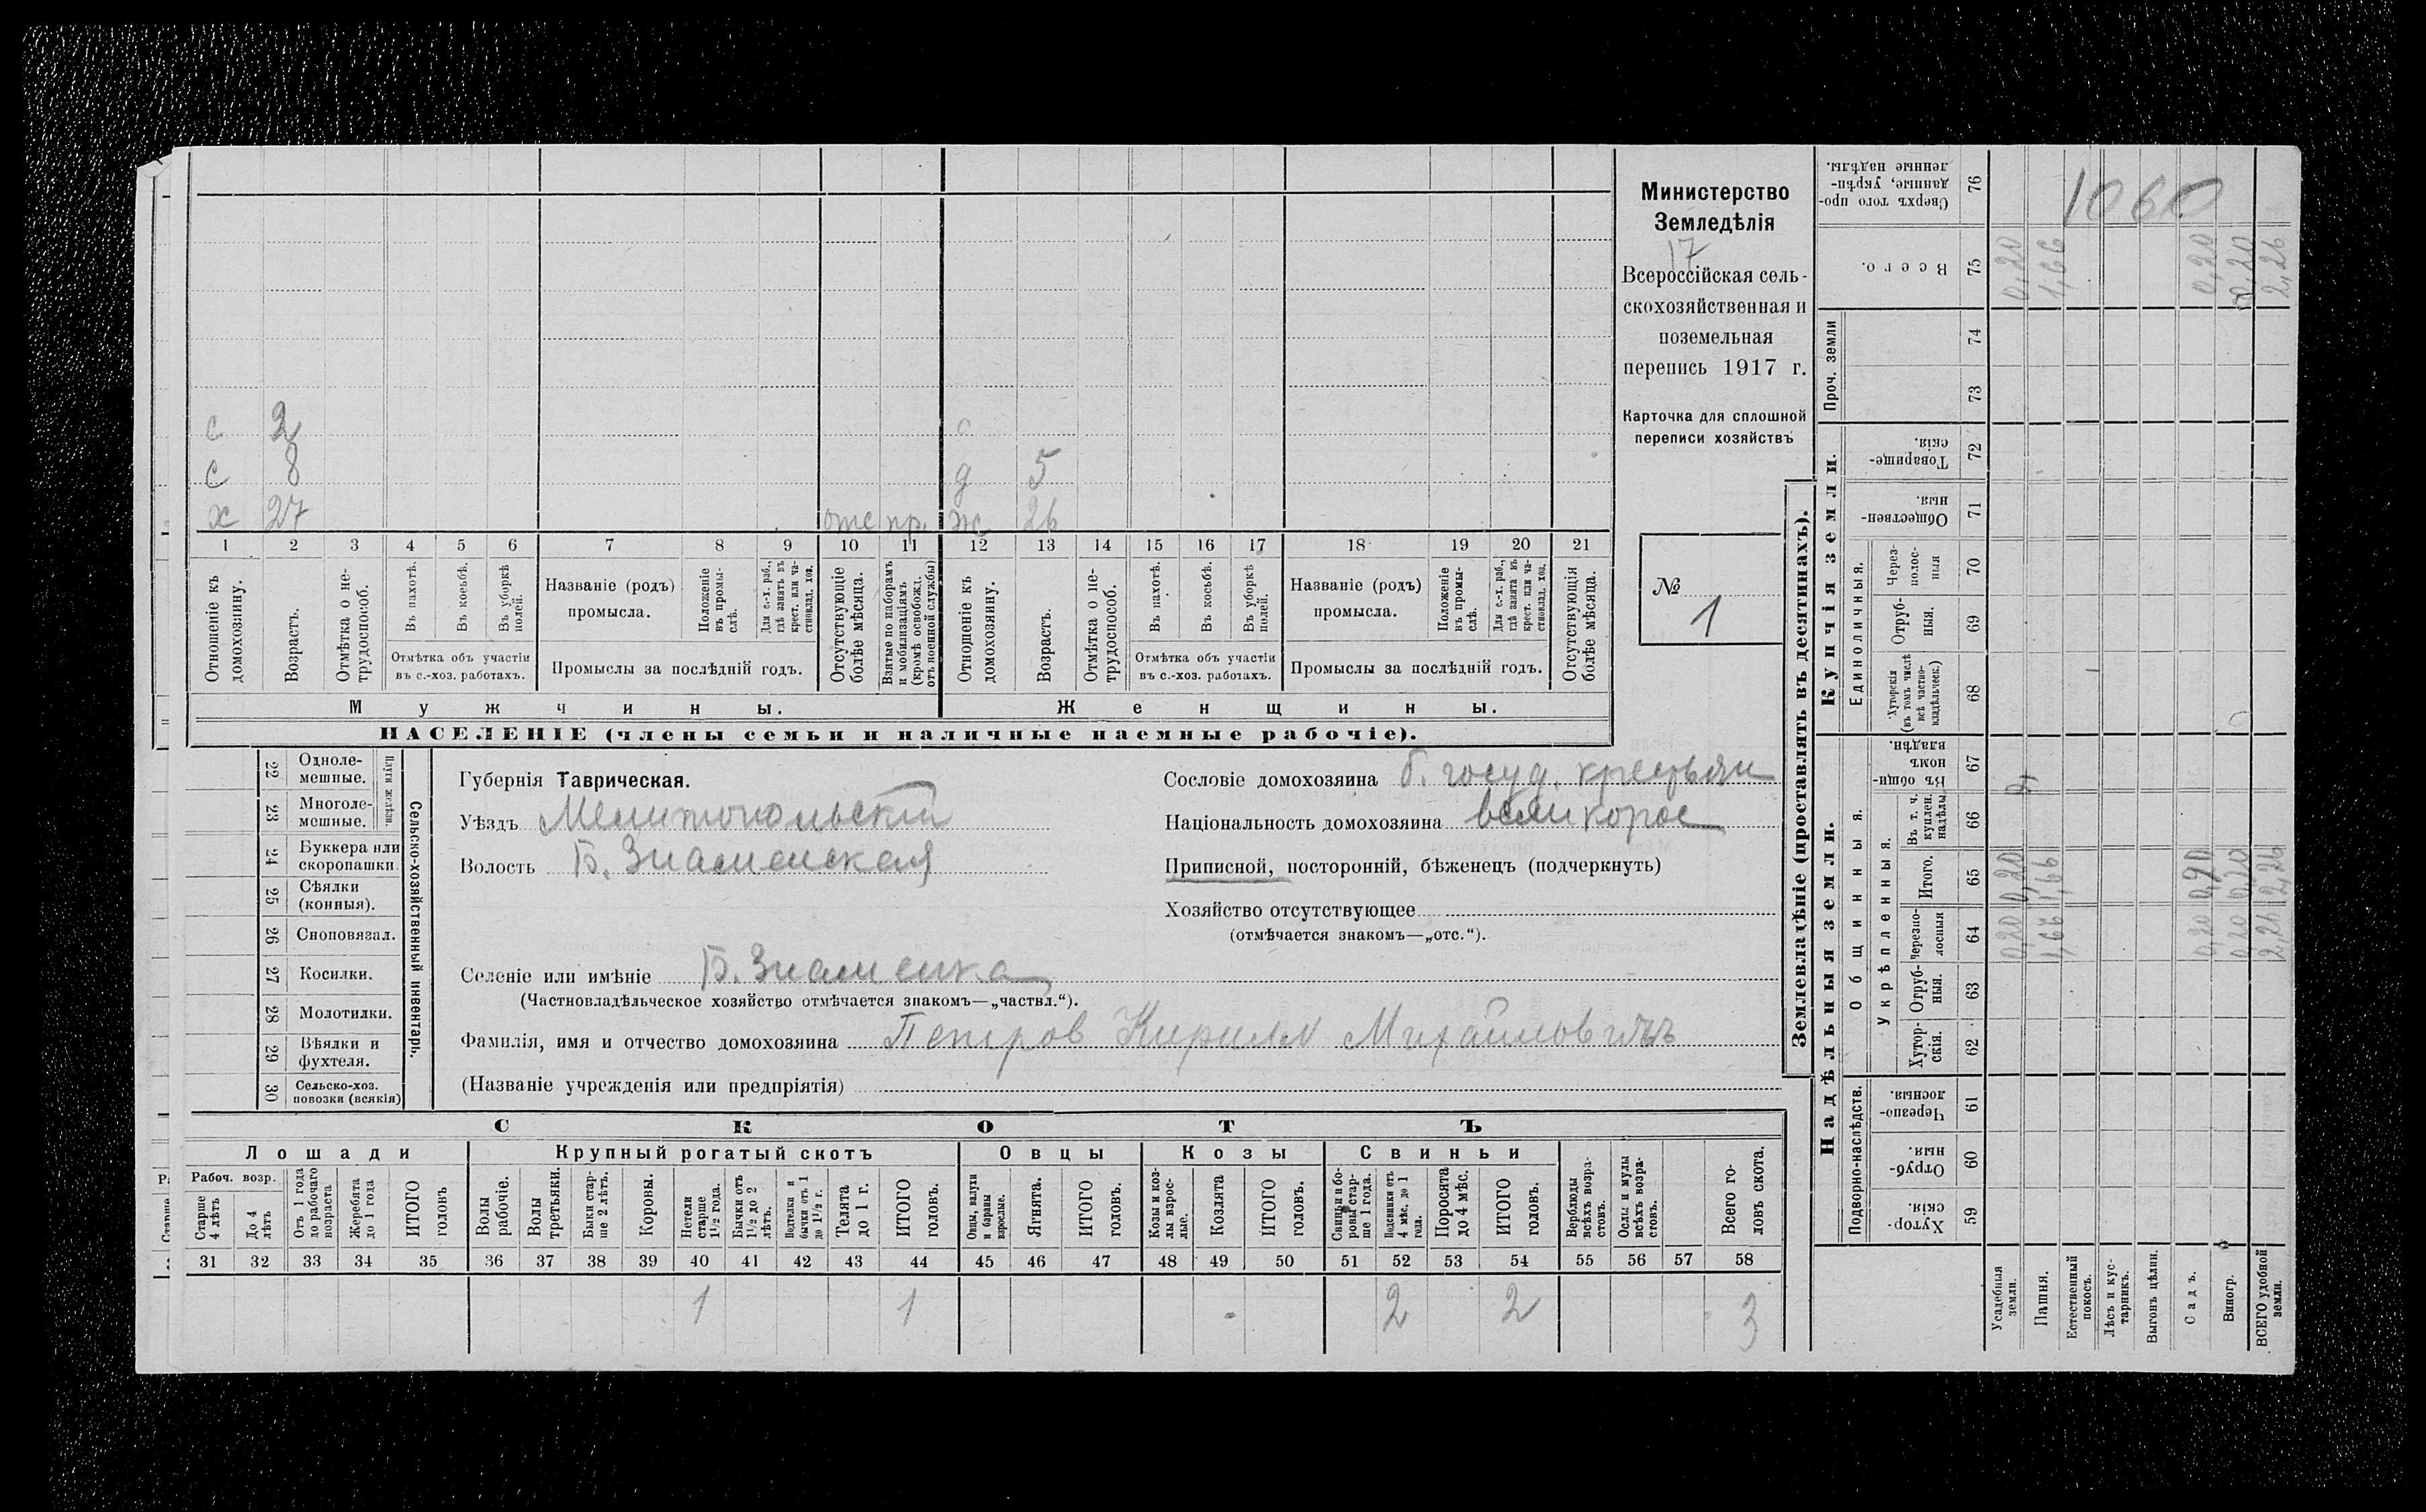 Министерство
Земледѣлія
17
Всероссійская сель-
скохозяйственная и
поземельная
перепись 1917 г.
Карточка для сплошной
переписи хозяйствъ
№
1
с 2
с 8 д 5
х 27 отс пр. ж 26
1 2 3 4 5 6 7 8 9 10 11 12 13 14 15 16 17 18 19 20 21
Отношеніе къ домохозяину.
Возрастъ.
Отмѣтка о не-трудоспособ.
Въ пахотѣ.
Въ косьбѣ.
Въ уборкѣ полей.
Отмѣтка объ участіи
въ с.-хоз. работахъ.
Названіе (родъ)
промысла.
Положеніе въ промы-слѣ.
Для с.-х. раб., гдѣ занятъ въ крест. или ча-стновлад. хоз.
Промыслы за послѣдній годъ.
Отсутствующіе болѣе мѣсяца.
Взятые по наборамъ и мобилизаціямъ (кромѣ освобожд. отъ военной службы)
Отношеніе къ домохозяину.
Возрастъ.
Отмѣтка о не-трудоспособ.
Въ пахотѣ.
Въ косьбѣ.
Въ уборкѣ полей.
Отмѣтка объ участіи
въ с.-хоз. работахъ.
Названіе (родъ)
промысла.
Положеніе въ промы-слѣ.
Для с.-х. раб., гдѣ занята въ крест. или ча-стновлад. хоз.
Промыслы за послѣдній годъ.
Отсутствующія болѣе мѣсяца.
Мужчины. Женщины.
НАСЕЛЕНІЕ (члены семьи и наличные наемные рабочіе).
Сельско-хозяйственный инвентарь.
Плуги желѣзн.
22 Одноле-мешные.
23 Многоле-мешные.
24 Буккера или скоропашки
25 Сѣялки (конныя).
26 Сноповязал.
27 Косилки.
28 Молотилки.
29 Вѣялки и фухтеля.
30 Сельско-хоз. повозки (всякія)
Губернія Таврическая.
Уѣздъ Мелитопольскій
Волость Б. Знаменская
Сословіе домохозяина б. госуд. крестьян
Національность домохозяина великорос
Приписной, посторонній, бѣженецъ (подчеркнуть)
Хозяйство отсутствующее
(отмѣчается знакомъ—„отс.“).
Селеніе или имѣніе Б. Знаменка
(Частновладѣльческое хозяйство отмѣчается знакомъ—„частвл.“).
Фамилія, имя и отчество домохозяина Петров Кирилл Михайлович
(Названіе учрежденія или предпріятія)
СКОТЪ
Лошади Крупный рогатый скотъ Овцы Козы Свиньи
Рабоч. возр.
Старше 4 лѣтъ
До 4 лѣтъ
Отъ 1 года до рабочаго возраста
Жеребята до 1 года
ИТОГО головъ
Волы рабочіе.
Волы третьяки.
Быки стар-ше 2 лѣтъ.
Коровы.
Нетели старше 1 1/2 года.
Бычки отъ 1 1/2 до 2 лѣтъ.
Подтелки и бычки отъ 1 до 1 1/2 г.
Телята до 1 г.
ИТОГО головъ.
Овцы, валухи и бараны взрослые.
Ягнята.
ИТОГО головъ.
Козы и коз-лы взрос-лые.
Козлята
ИТОГО головъ.
Свиньи и бо-ровы стар-ше 1 года.
Подсвинки отъ 4 мѣс. до 1 года.
Поросята до 4 мѣс.
ИТОГО головъ.
Верблюды всѣхъ возра-стовъ.
Ослы и мулы всѣхъ возра-стовъ.
Всего го-ловъ скота.
31 32 33 34 35 36 37 38 39 40 41 42 43 44 45 46 47 48 49 50 51 52 53 54 55 56 57 58
1 1 2 2 3
Землевладѣніе (проставлять въ десятинахъ).
Надѣльныя земли. Купчія земли. Проч. земли
Подворно-наслѣдств.
Общинныя.
Укрѣпленныя.
Единоличныя.
59 Хутор-скія.
60 Отруб-ныя.
61 Черезпо-лосныя.
62 Хутор-скія.
63 Отруб-ныя.
64 Черезпо-лосныя
65 Итого.
66 Въ т. ч. куплен. надѣлы
67 Въ общин-номъ владѣн.
68 Хуторскія (въ томъ числѣ всѣ частно-владѣльческ.)
69 Отруб-ныя.
70 Через-полос-ныя
71 Обществен-ныя.
72 Товарище-скія.
73
74
75 Всего.
76 Сверхъ того про-данные, укрѣп-ленные надѣлы.
1060
Усадебныя земли. 0,20 0,20 0,20
Пашня. 1,66 1,66
Естественный покосъ.
Лѣсъ и кус-тарникъ.
Выгонъ цѣлин.
Садъ. 0,20 0,20
Виногр. 0,20 0,20 0,20
ВСЕГО удобной земли. 2,26 2,26 2,26